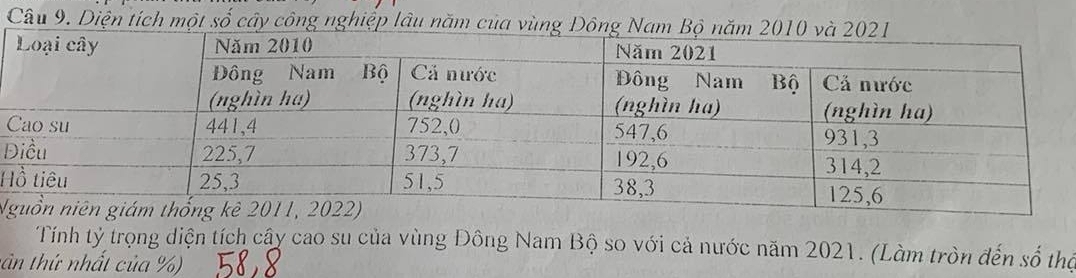 Câu 9. Diện tích một số cây công nghiệp lâu năm của vùng Đông Nam Bộ năm 2010 và 2021
Loại cây Năm 2010 Năm 2021
Đông Nam Bộ (nghìn ha) Cả nước (nghìn ha) Đông Nam Bộ (nghìn ha) Cả nước (nghìn ha)
Cao su 441,4 752,0 547,6 931,3
Điều 225,7 373,7 192,6 314,2
Hồ tiêu 25,3 51,5 38,3 125,6
Nguồn niên giám thống kê 2011, 2022)
Tính tỷ trọng diện tích cây cao su của vùng Đông Nam Bộ so với cả nước năm 2021. (Làm tròn đến số
thứ nhất của %) 58,8